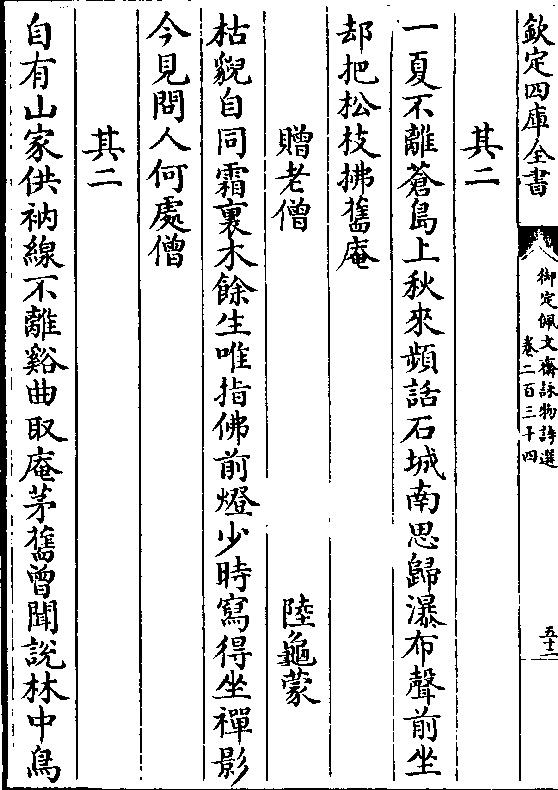 欽定四庫全書
御定佩文齋詠物詩選
卷二百三十四
五十二
其二
一夏不離蒼島上秋來頻話石城南思歸瀑布聲前坐
却把松枝拂舊庵
贈老僧 陸龜蒙
枯貌自同霜裏木餘生唯指佛前燈少時寫得坐禪影
今見問人何處僧
其二
自有山家供衲線不離谿曲取庵茅舊曾聞說林中鳥